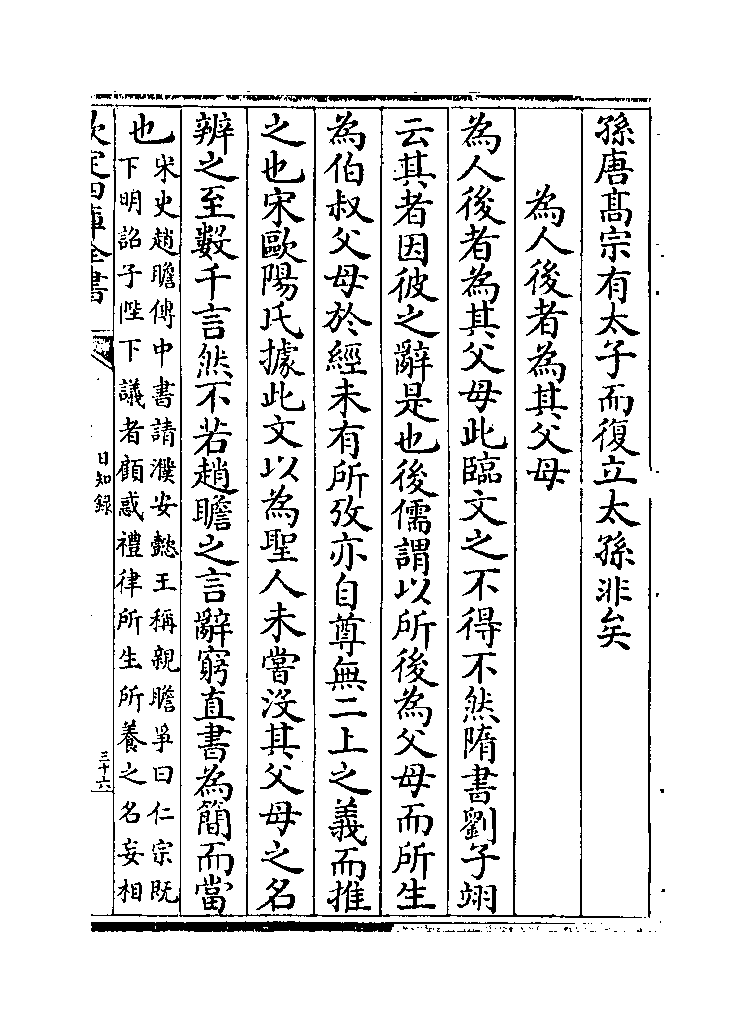 孫唐髙宗有太子而復立太孫非矣
為人後者為其父母
為人後者為其父母此臨文之不得不然隋書劉子翊
云其者因彼之辭是也後儒謂以所後為父母而所生
為伯叔父母於經未有所攷亦自尊無二上之義而推
之也宋歐陽氏據此文以為聖人未嘗沒其父母之名
辨之至數千言然不若趙瞻之言辭窮直書為簡而當
也宋史趙瞻傳中書請濮安懿王稱親瞻爭曰仁宗既
下明詔子陛下議者顧惑禮律所生所養之名妄相
欽定四庫全書
日知録
三十六